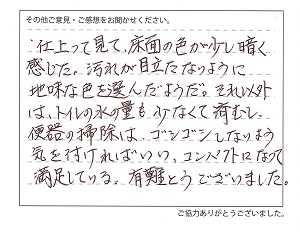 その他ご意見・ご感想をお聞かせください。
仕上って見て、床面の色が少し暗く
感じた。汚れが目立たないように
地味な色を選んだようだ。それ以外
は、トイレの水の量も少なくて済むし、
便器の掃除は、ゴシゴシしないよう
気を付ければいい、コンパクトになって
満足している。有難とうございました。
ご協力ありがとうございました。